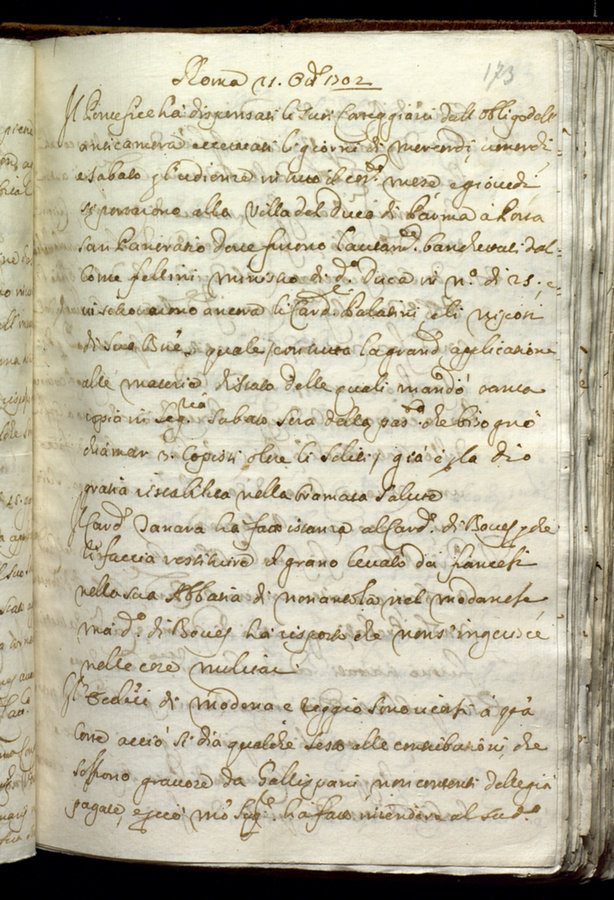 Roma 21. Ott.e 1702
173
Il Pontefice há dispensati li suoi Corteggiani dall'obligo dell'
anticamera eccettuati li giorni di mercordì, venerdì,
e Sabato p l'udienze in tutto il mese e giovedì
si portarono alla Villa del Duca di Parma à Porta
San Pancratio dove furono lautam.te banchettati dal
Conte fellini ministro di d.o Duca in n.o di 25, e
vi si trovarono ancora li Card. Palatini, e li nipoti
di Sua , quale, continua la grand' applicatione
alle materie di stato delle quali mandò tanta
copia in Seg.ria Sabato Sera della pas.ta che bisognò
chiamar 3. Copisti oltre li Soliti, già è p la dio
gratia ristabilita nella bramata Salute
Il Card. Tanara ha fatto istanza al Card. di , che
li faccia restituire il grano levato dai francesi
nella sua Abbatia di nonantola nel modanese,
ma d.o di ha risposto che non s'ingerisce
nelle cose militari
Gl' di modena e reggio sono à q.ta
Corte acciò si dia qualche sesto alle contributioni, che
soffrono gravose da Gallispani non contenti delle già
pagate, e p ciò mo' Sig.re ha fatto intendere al sud.o